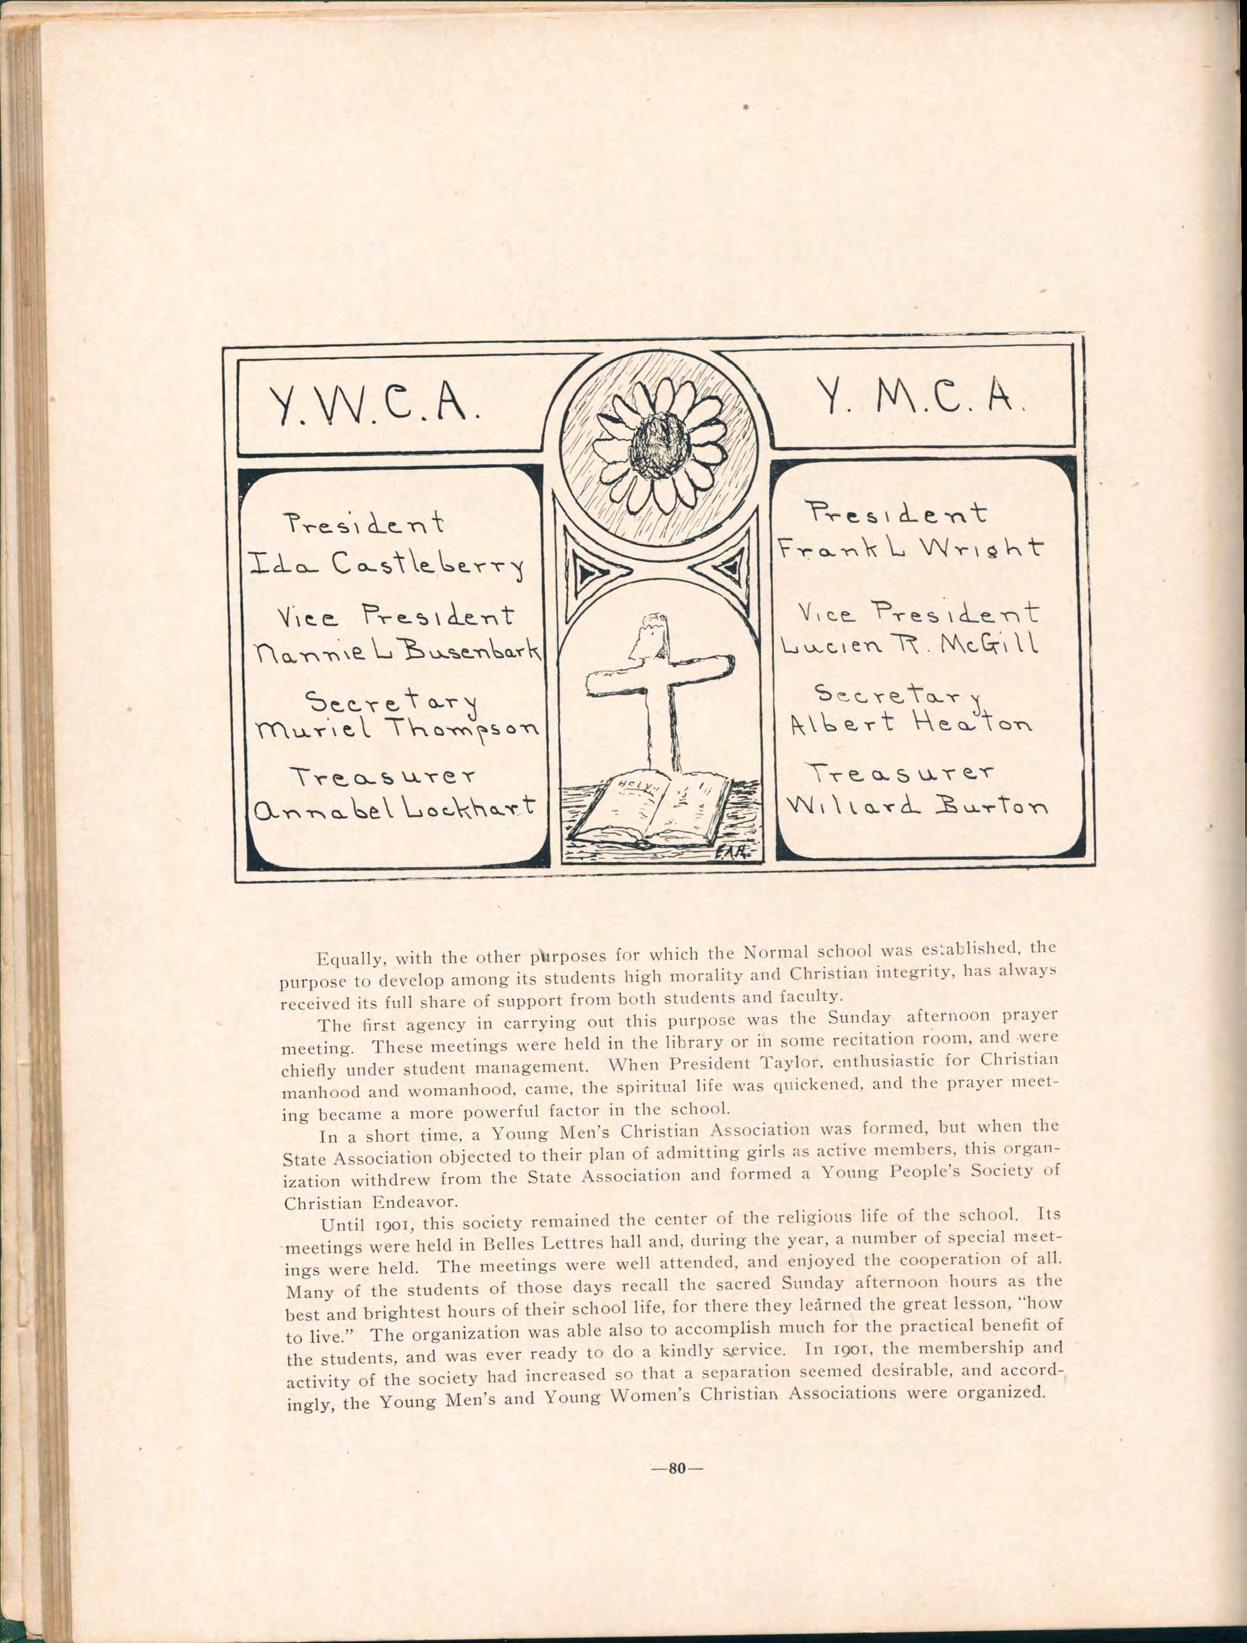 Y.W.C.A.
President
Ida Castleberry
Vice President
Nannie L Busenbark
Secretary
Muriel Thompson
Treasurer
Annabel Lockhart
Y. M.C.A.
President
Frank L Wright
Vice President
Lucien R. McGill
Secretary
Albert Heaton
Treasurer
Willard Burton
HOLY
E.A.H.
Equally, with the other purposes for which the Normal school was established, the
purpose to develop among its students high morality and Christian integrity, has always
received its full share of support from both students and faculty.
The first agency in carrying out this purpose was the Sunday afternoon prayer
meeting. These meetings were held in the library or in some recitation room, and were
chiefly under student management. When President Taylor, enthusiastic for Christian
manhood and womanhood, came, the spiritual life was quickened, and the prayer meet-
ing became a more powerful factor in the school.
In a short time, a Young Men's Christian Association was formed, but when the
State Association objected to their plan of admitting girls as active members, this organ-
ization withdrew from the State Association and formed a Young People's Society of
Christian Endeavor.
Until 1901, this society remained the center of the religious life of the school. Its
meetings were held in Belles Lettres hall and, during the year, a number of special meet-
ings were held. The meetings were well attended, and enjoyed the cooperation of all.
Many of the students of those days recall the sacred Sunday afternoon hours as the
best and brightest hours of their school life, for there they learned the great lesson, "how
to live." The organization was able also to accomplish much for the practical benefit of
the students, and was ever ready to do a kindly service. In 1901, the membership and
activity of the society had increased so that a separation seemed desirable, and accord-
ingly, the Young Men's and Young Women's Christian Associations were organized.
—80—